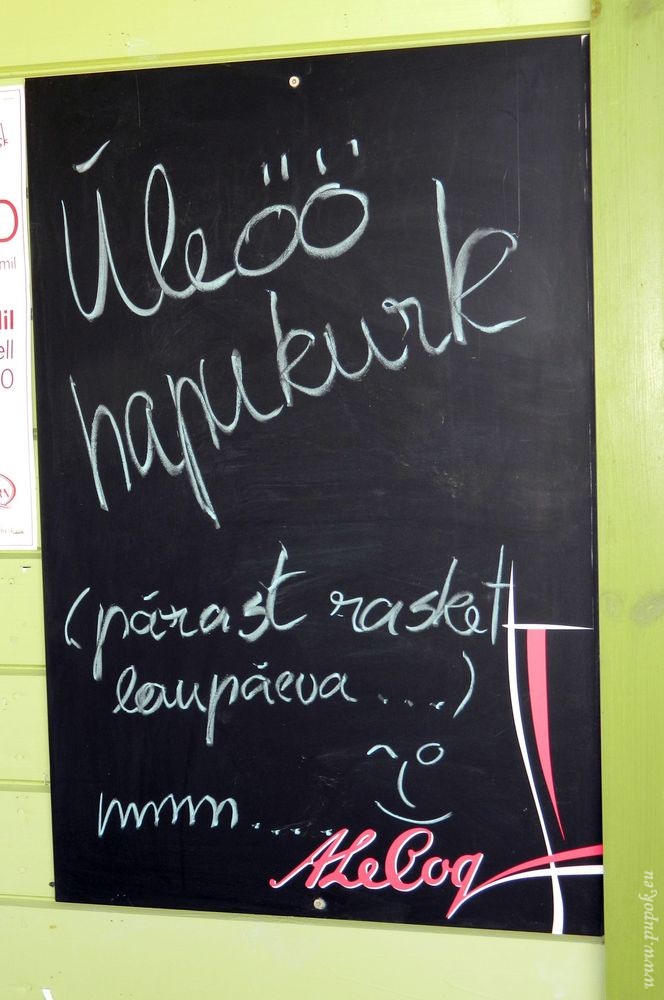 Üleöö
hapukurk
(pärast rasket
laupäeva....)
mmm.....
ALeCoq
www.pupok.eu